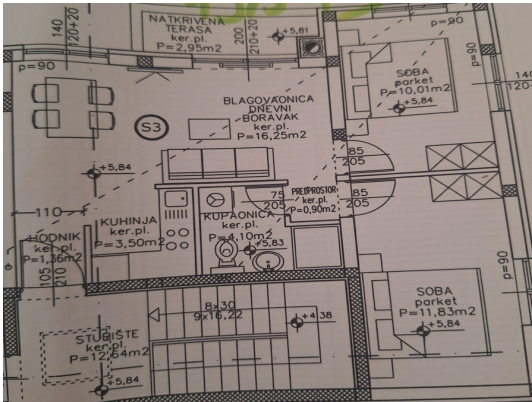 NATKRIVENA
TERASA
ker.pl.
P=2,95m2
+5,81
140
120+20
200
210+20
p=90
p=90
p=90
140
SOBA
parket
P=10,01m2
+5,84
BLAGOVAONICA
DNEVNI
BORAVAK
ker.pl.
P=16,25m2
S3
+5,84
85
205
75
205
PREDPROSTOR
ker.pl.
P=0,90m2
85
205
110
KUHINJA
ker.pl.
P=3,50m2
KUPAONICA
ker.pl.
P=4,10m2
+5,83
HODNIK
ker.pl.
P=1,35m2
105
210
p=90
SOBA
parket
P=11,83m2
+5,84
8x30
9x16,22
+4,38
STUBIŠTE
ker.pl.
P=12,64m2
+5,84